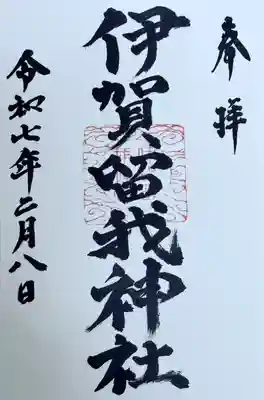 奉拝
伊賀留我神社
令和七年二月八日